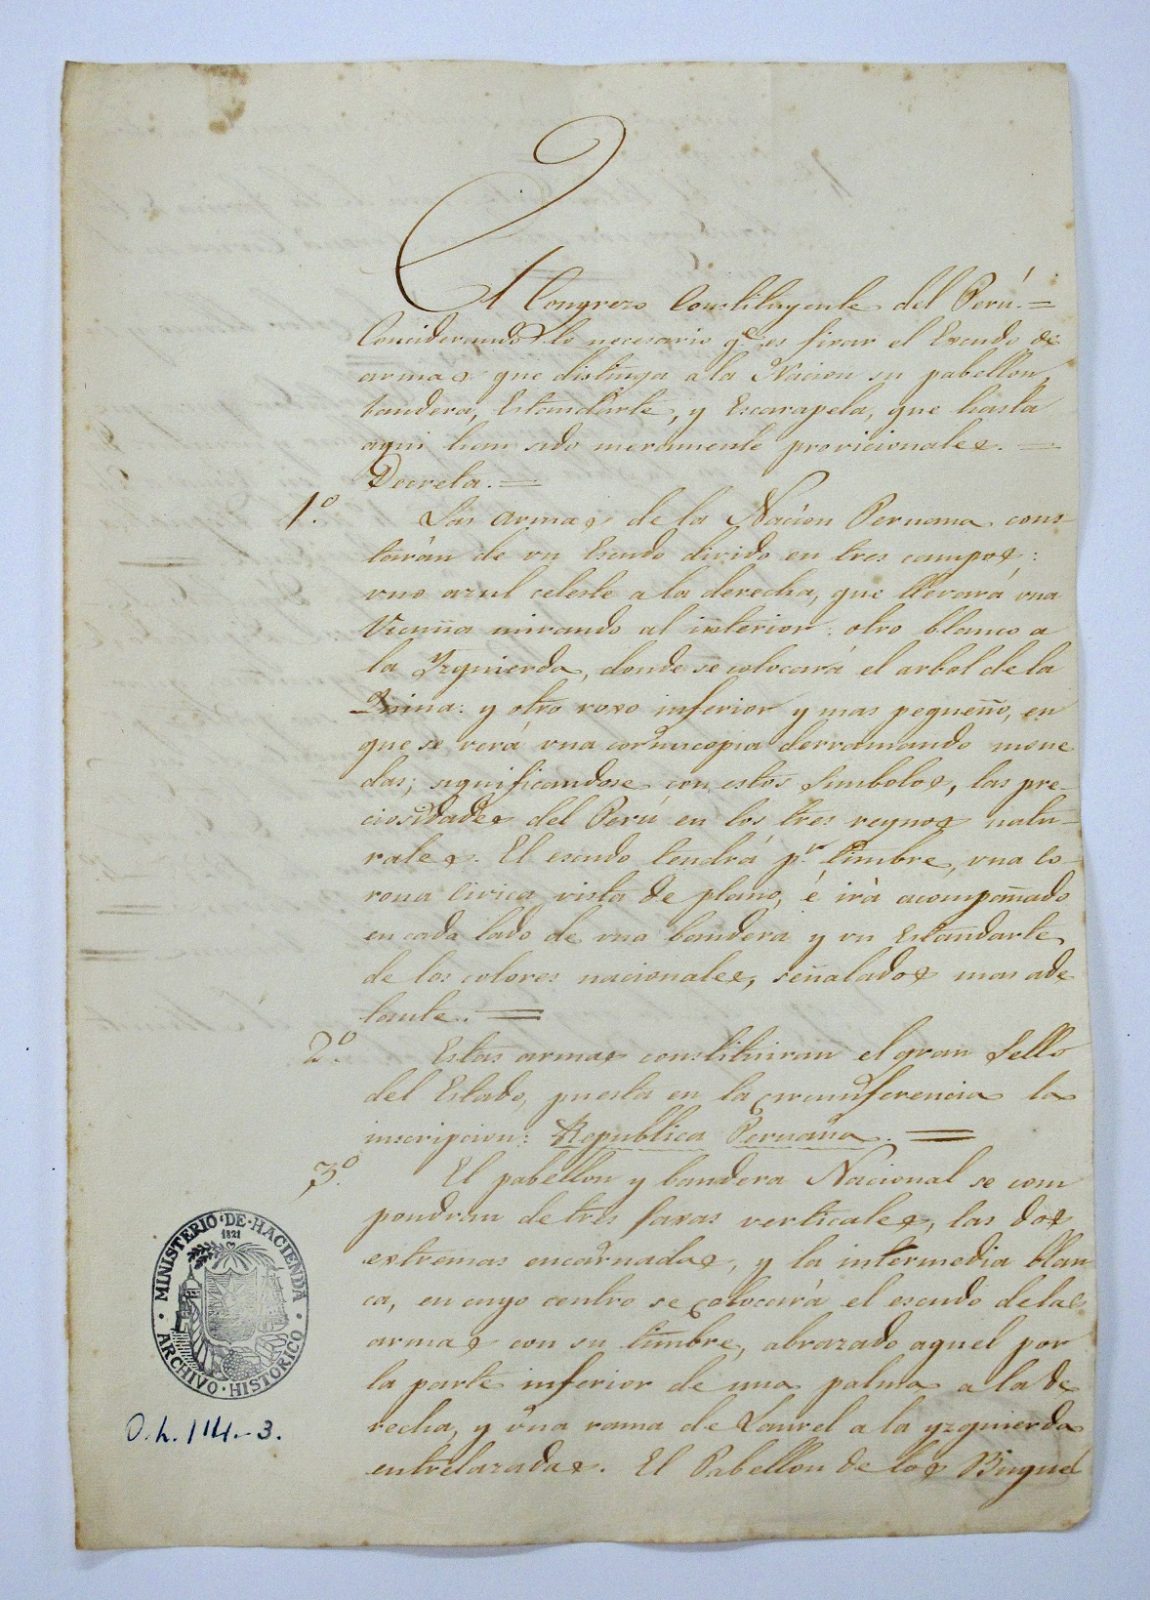 El Congreso Constituyente del Perú. =
Conciderando lo necesario q.e es fixar el Escudo de
armas que distinga a la Nacion su pabellon,
bandera, Estandarte, y Escarapela, que hasta
aqui han sido meramente provicionales. =
Decreta. =
1.o Las armas de la Nacion Peruana cons-
tarán de un Escudo divido en tres campos:
uno azul celeste a la derecha, que llevará una
Vicuña mirando al interior: otro blanco a
la Yzquierda, donde se colocará el arbol de la
Quina: y otro roxo inferior y mas pequeño, en
que se verá una cornucopia derramando mone
das; significandose con estos Simbolos, las pre-
ciosidades del Perú en los tres reynos natu-
rales. El escudo tendrá p.r timbre, una co-
rona civica vista de plano, é irà acompañado
en cada lado de una bandera y un Estandarte
de los colores nacionales, señalados mas ade
lante. =
2.o Estas armas constituiran el gran Sello
del Estado, puesta en la circunferencia la
inscripcion: Republica Peruana. =
3.o El pabellon y bandera Nacional se com
pondran de tres faxas verticales, las dos
extremas encarnadas, y la intermedia blan
ca, en cuyo centro se colocará el escudo de las
armas con su timbre, abrazado aquel por
la parte inferior de una palma a la de
recha, y una rama de Laurel a la yzquierda
entrelazadas. El Pabellon de los Buque
MINISTERIO·DE·HACIENDA
1821
ARCHIVO·HISTORICO
O.L. 114-3.